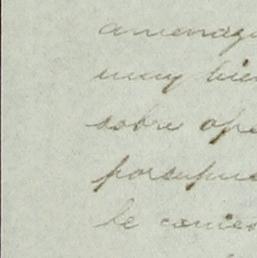 amenaza
muy bien
sobre ope
porsupue
le conies